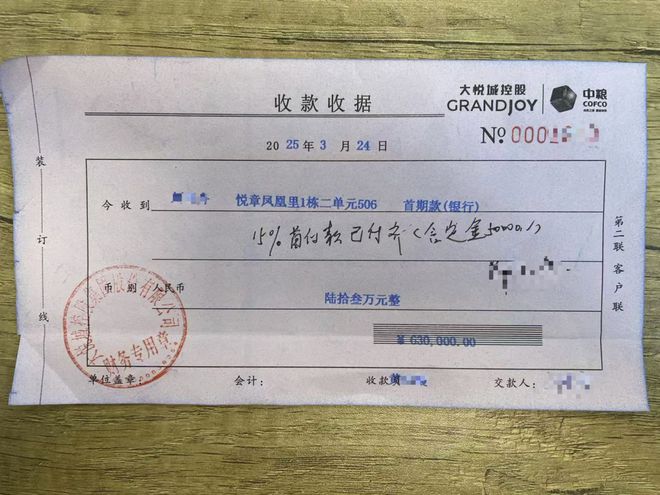 大悦城控股 中粮
GRANDJOY COFCO
收款收据
2025年3月24日 № 0001
今收到 悦章凤凰里1栋二单元506 首期款(银行)
15%首付款已付齐(含定金50000.)
币别 人民币
陆拾叁万元整
¥ 630,000.00
财务专用章
单位盖章: 会计: 收款 交款人:
装订线
第二联 客户联